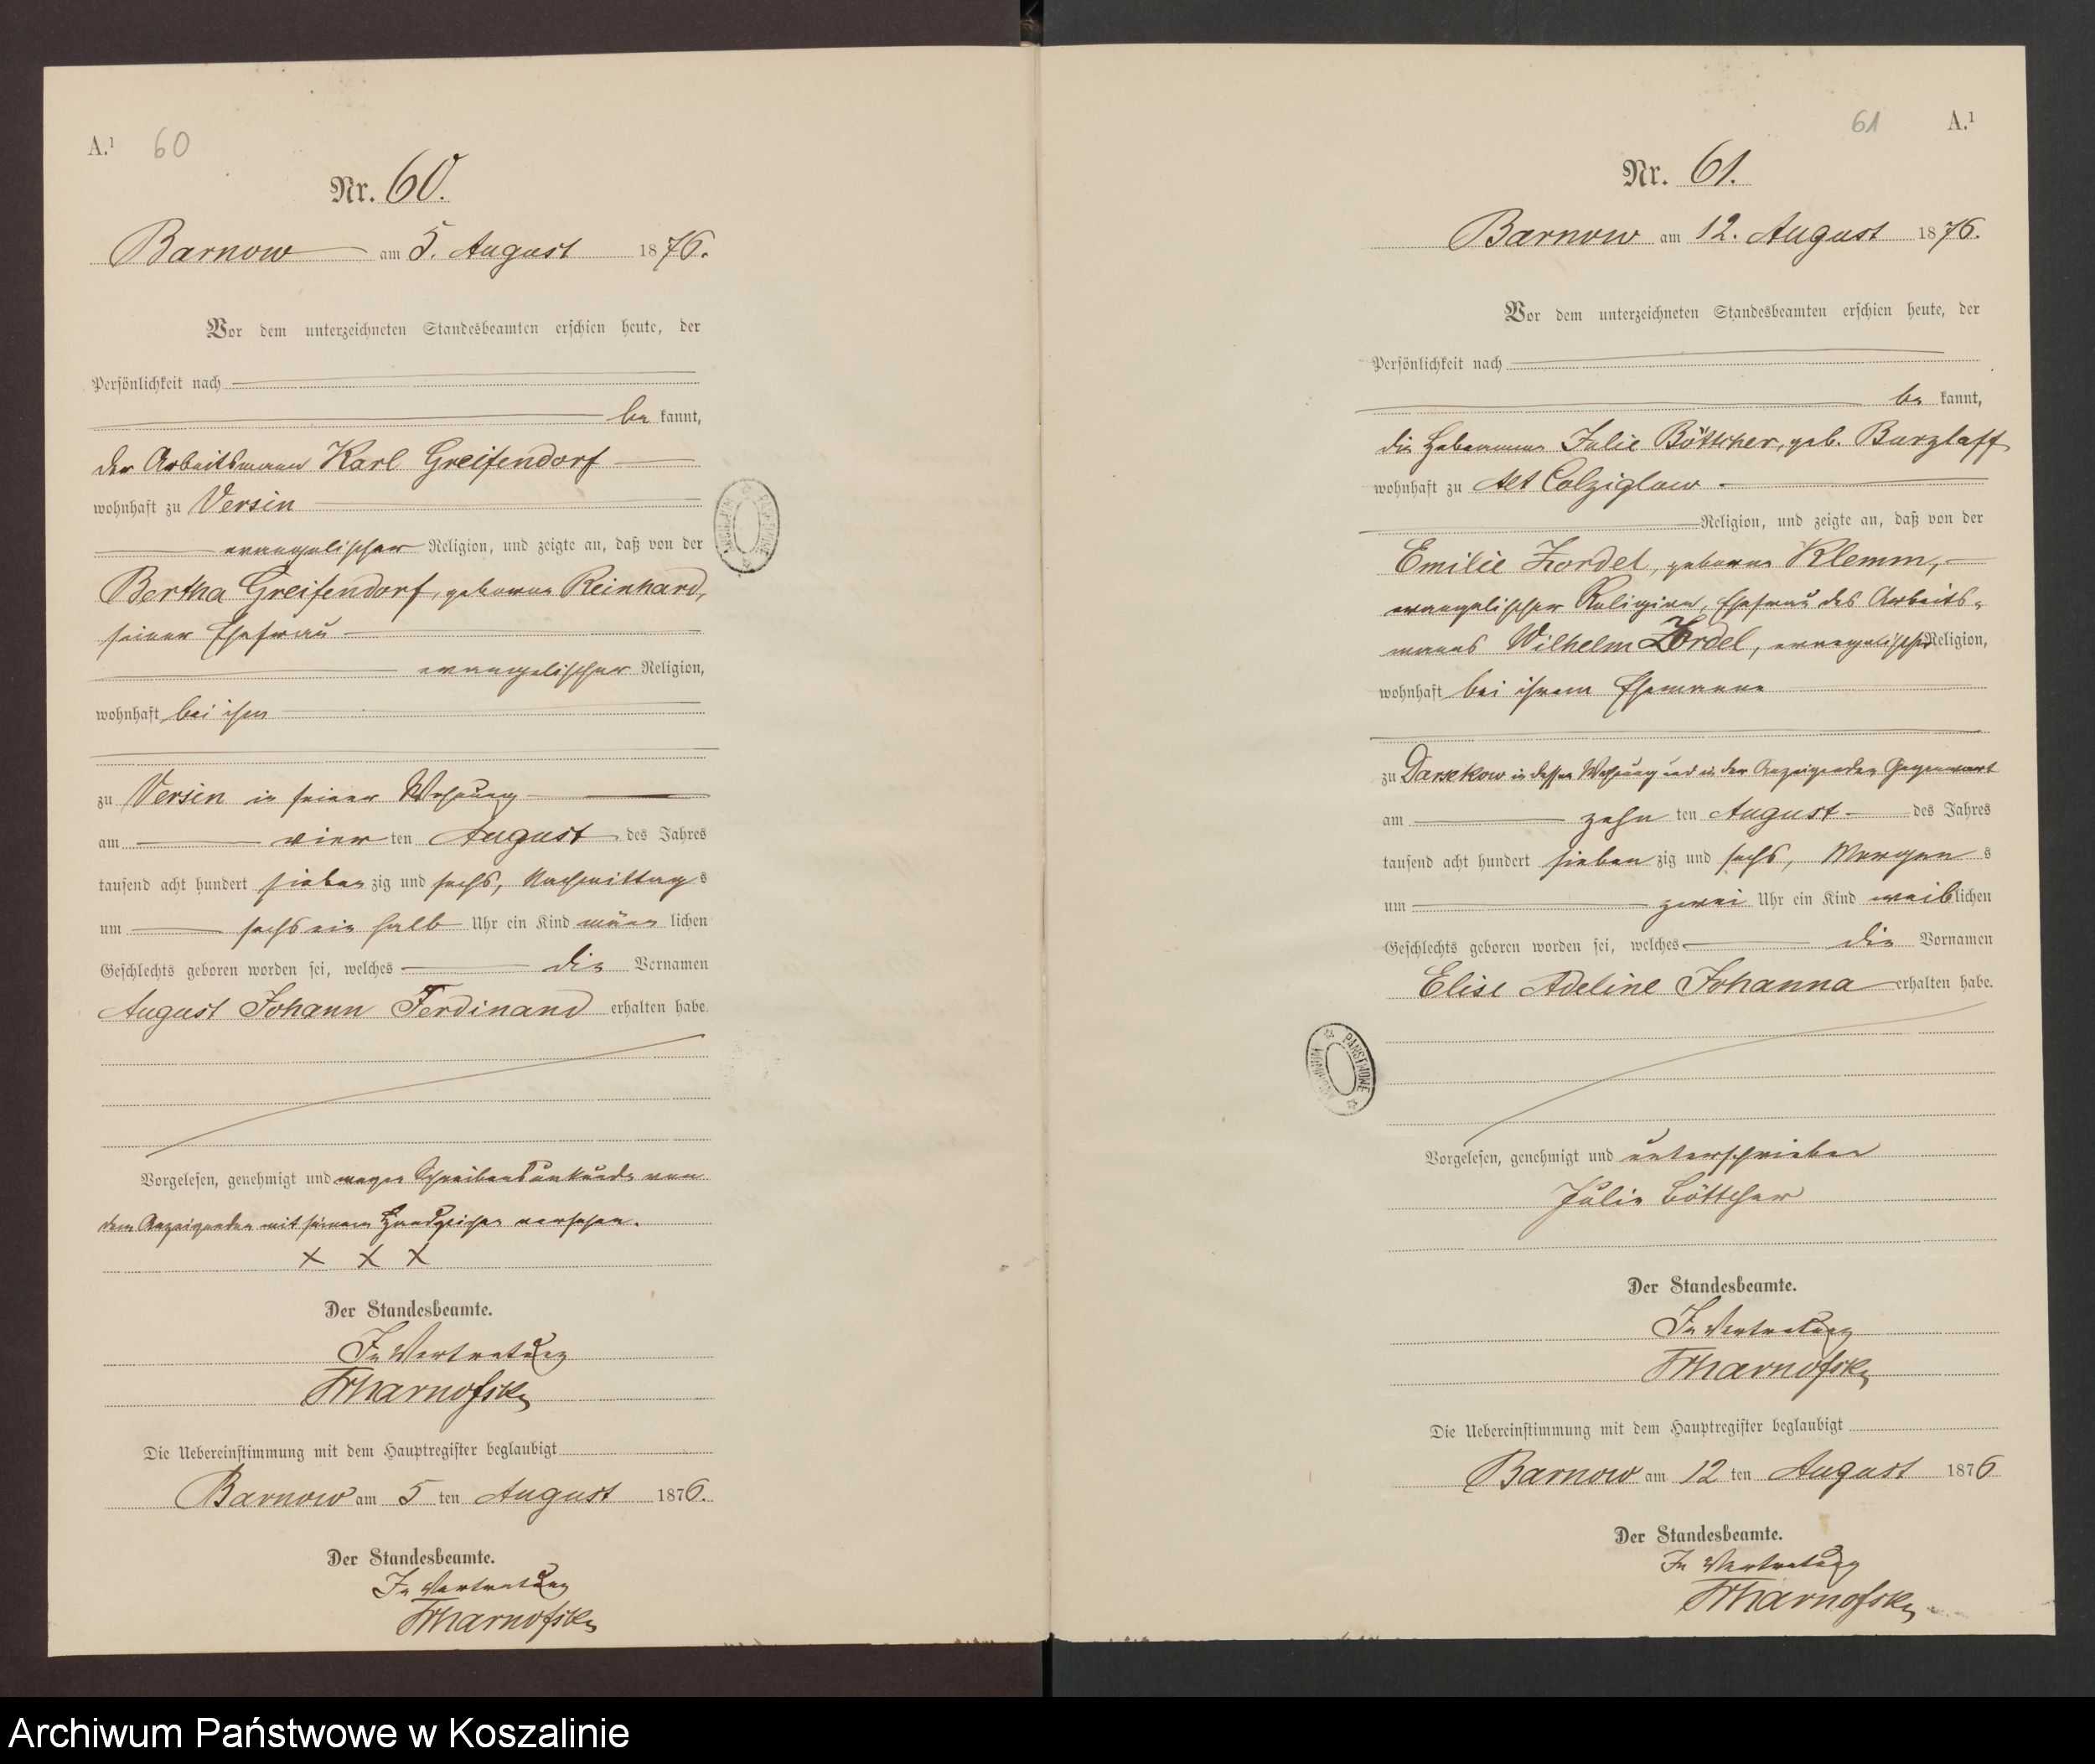 A.¹ 60
Nr. 60.
Barnow am 5. August 1876.
Vor dem unterzeichneten Standesbeamten erschien heute, der
Persönlichkeit nach
be kannt,
der Arbeitsmann Karl Greifendorf
wohnhaft zu Versin
evangelischer Religion, und zeigte an, daß von der
Bertha Greifendorf, geborne Reinhard,
seiner Ehefrau
evangelischer Religion,
wohnhaft bei ihm
zu Versin in seiner Wohnung
am vier ten August des Jahres
tausend acht hundert sieben zig und sechs, Nachmittag s
um sechs ein halb Uhr ein Kind männ lichen
Geschlechts geboren worden sei, welches die Vornamen
August Johann Ferdinand erhalten habe.
Vorgelesen, genehmigt und wegen Schreibensunkunde von
dem Anzeigenden mit seinem Handzeichen versehen.
X X X
Der Standesbeamte.
In Vertretung
Die Uebereinstimmung mit dem Hauptregister beglaubigt
Barnow am 5 ten August 1876.
Der Standesbeamte.
In Vertretung
61 A.¹
Nr. 61.
Barnow am 12. August 1876.
Vor dem unterzeichneten Standesbeamten erschien heute, der
Persönlichkeit nach
be kannt,
die Hebamme Julie Böttcher, geb. Burzlaff
wohnhaft zu Alt Colziglow
Religion, und zeigte an, daß von der
Emilie Zordel, geborne Klemm,
evangelischer Religion, Ehefrau des Arbeits-
manns Wilhelm Zordel, evangelischer Religion,
wohnhaft bei ihrem Ehemanne
zu Darsekow in dessen Wohnung und in der Anzeigenden Gegenwart
am zehn ten August des Jahres
tausend acht hundert sieben zig und sechs, Morgen s
um zwei Uhr ein Kind weib lichen
Geschlechts geboren worden sei, welches die Vornamen
Elise Adeline Johanna erhalten habe.
ARCHIWUM PAŃSTWOWE
Vorgelesen, genehmigt und unterschrieben
Julie Böttcher
Der Standesbeamte.
In Vertretung
Die Uebereinstimmung mit dem Hauptregister beglaubigt
Barnow am 12 ten August 1876
Der Standesbeamte.
In Vertretung
Archiwum Państwowe w Koszalinie